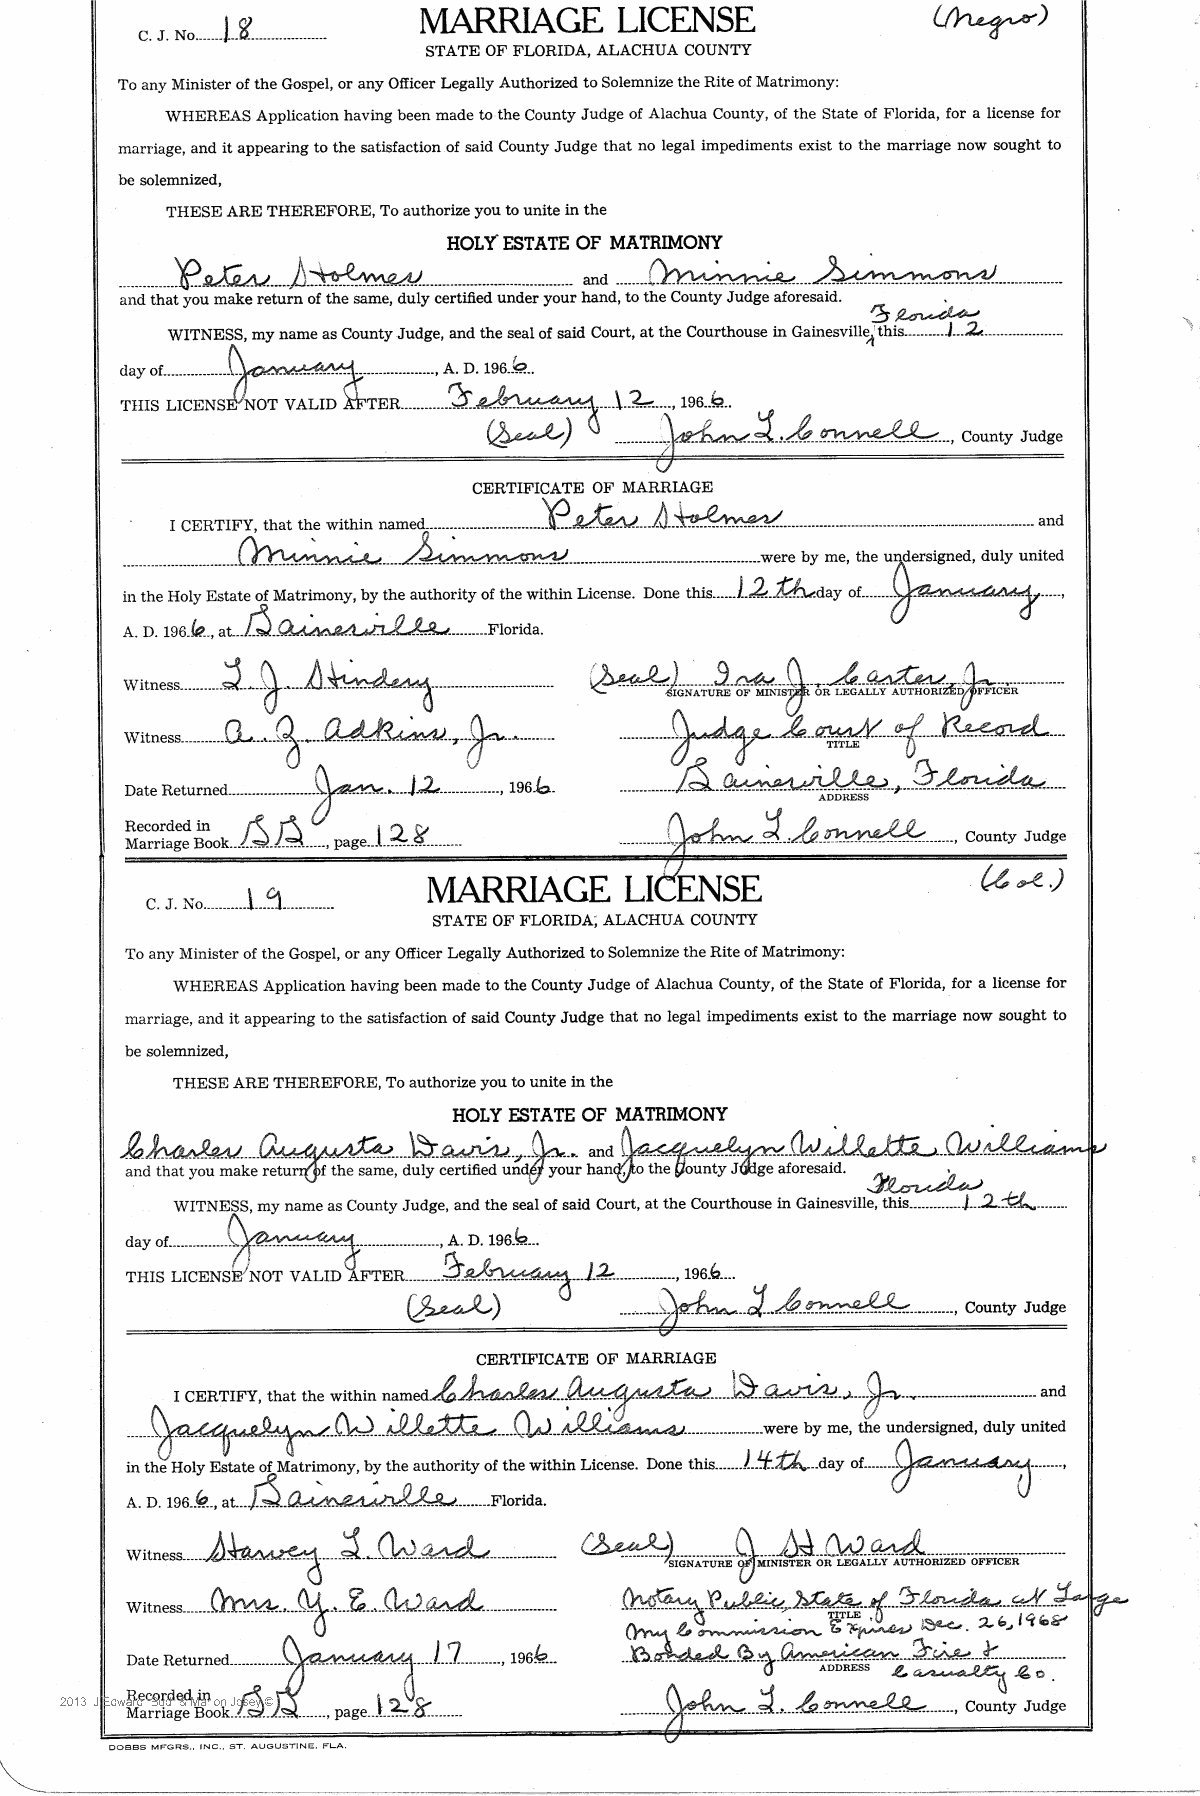 C. J. No. 18 MARRIAGE LICENSE (Negro)
STATE OF FLORIDA, ALACHUA COUNTY
To any Minister of the Gospel, or any Officer Legally Authorized to Solemnize the Rite of Matrimony:
WHEREAS Application having been made to the County Judge of Alachua County, of the State of Florida, for a license for
marriage, and it appearing to the satisfaction of said County Judge that no legal impediments exist to the marriage now sought to
be solemnized,
THESE ARE THEREFORE, To authorize you to unite in the
HOLY ESTATE OF MATRIMONY
Peter Holmes and Minnie Simmons
and that you make return of the same, duly certified under your hand, to the County Judge aforesaid.
Florida
WITNESS, my name as County Judge, and the seal of said Court, at the Courthouse in Gainesville, this 12
day of January, A. D. 1966.
THIS LICENSE NOT VALID AFTER February 12, 1966.
(Seal) John L. Connell, County Judge
CERTIFICATE OF MARRIAGE
I CERTIFY, that the within named Peter Holmes and
Minnie Simmons were by me, the undersigned, duly united
in the Holy Estate of Matrimony, by the authority of the within License. Done this 12th day of January,
A. D. 1966, at Gainesville Florida.
Witness L. J. Hindery (Seal) Ira J. Carter, Jr.
SIGNATURE OF MINISTER OR LEGALLY AUTHORIZED OFFICER
Witness A. Z. Adkins, Jr. Judge Court of Record
TITLE
Date Returned Jan. 12, 1966. Gainesville, Florida
ADDRESS
Recorded in
Marriage Book BB, page 128 John L. Connell, County Judge
C. J. No. 19 MARRIAGE LICENSE (Col.)
STATE OF FLORIDA, ALACHUA COUNTY
To any Minister of the Gospel, or any Officer Legally Authorized to Solemnize the Rite of Matrimony:
WHEREAS Application having been made to the County Judge of Alachua County, of the State of Florida, for a license for
marriage, and it appearing to the satisfaction of said County Judge that no legal impediments exist to the marriage now sought to
be solemnized,
THESE ARE THEREFORE, To authorize you to unite in the
HOLY ESTATE OF MATRIMONY
Charles Augusta Davis, Jr. and Jacquelyn Willette Williams
and that you make return of the same, duly certified under your hand, to the County Judge aforesaid.
Florida
WITNESS, my name as County Judge, and the seal of said Court, at the Courthouse in Gainesville, this 12th
day of January, A. D. 1966.
THIS LICENSE NOT VALID AFTER February 12, 1966.
(Seal) John L Connell, County Judge
CERTIFICATE OF MARRIAGE
I CERTIFY, that the within named Charles Augusta Davis, Jr. and
Jacquelyn Willette Williams were by me, the undersigned, duly united
in the Holy Estate of Matrimony, by the authority of the within License. Done this 14th day of January,
A. D. 1966, at Gainesville Florida.
Witness Harvey L. Ward (Seal) J H Ward
SIGNATURE OF MINISTER OR LEGALLY AUTHORIZED OFFICER
Witness Mrs. Y. E. Ward Notary Public, State of Florida at Large
TITLE
My Commission Expires Dec. 26, 1968
Date Returned January 17, 1966 Bonded By American Fire &
ADDRESS Casualty Co.
Recorded in
Marriage Book BB, page 128 John L. Connell, County Judge
DOBBS MFGRS., INC., ST. AUGUSTINE, FLA.